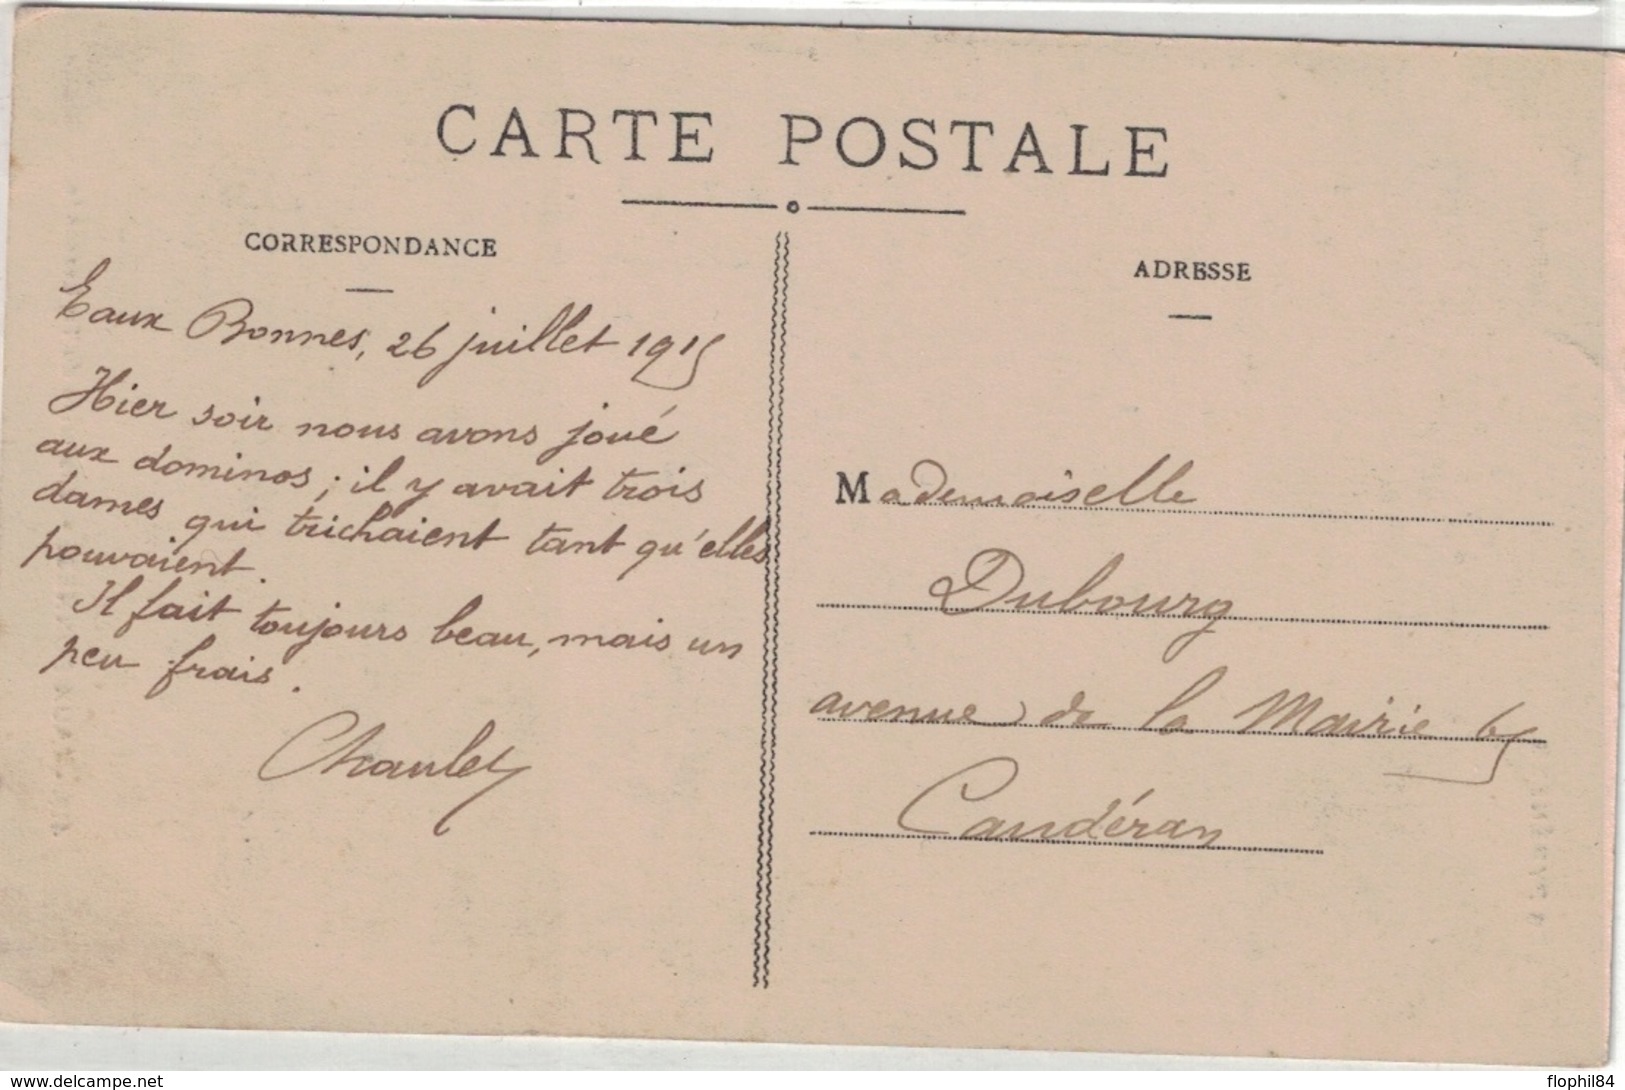 CARTE POSTALE
CORRESPONDANCE
Eaux Bonnes, 26 juillet 1915
Hier soir nous avons joué
aux dominos ; il y avait trois
dames qui trichaient tant qu'elles
pouvaient.
Il fait toujours beau, mais un
peu frais.
ADRESSE
Mademoiselle
Dubourg
avenue de la Mairie 65
Caudéran
www.delcampe.net
flophil84